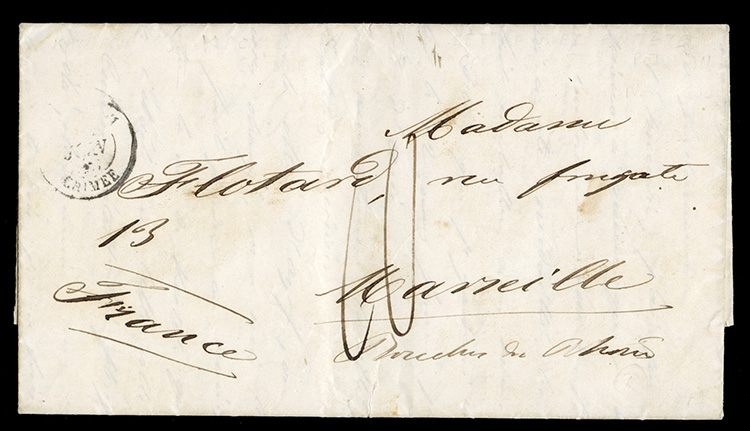 Madame
Flotard, rue frégate
13
Marseille
France
Bouches du Rhône
10
CRIMÉE